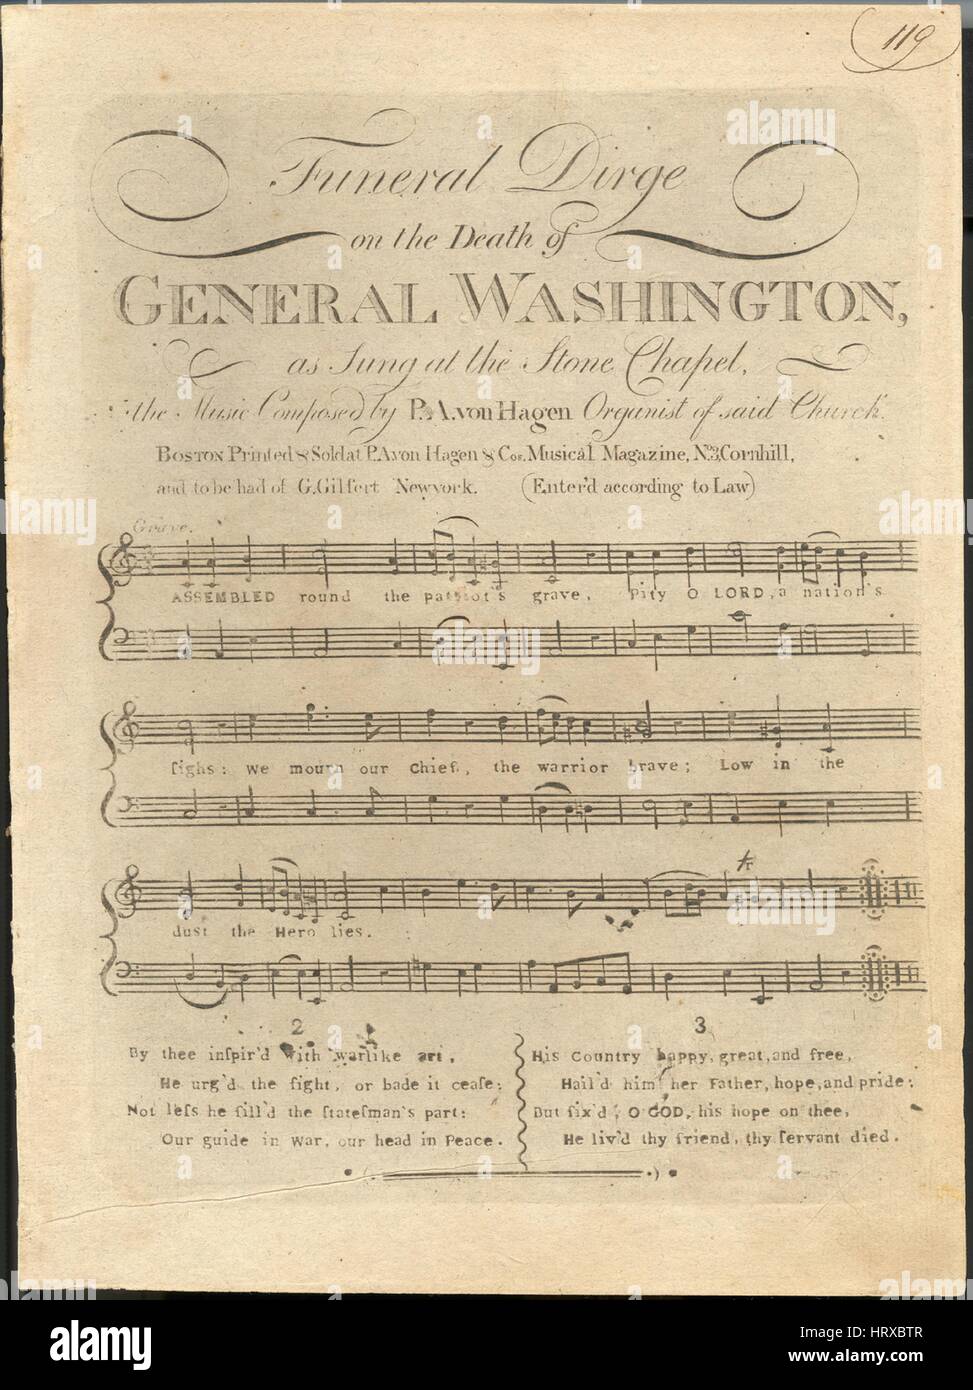 119
Funeral Dirge
on the Death of
GENERAL WASHINGTON,
as Sung at the Stone Chapel,
the Music Composed by P. A. von Hagen Organist of said Church.
BOSTON Printed & Sold at P. A von Hagen & Cos. Musical Magazine, No. 3, Cornhill,
and to be had of G. Gilfert Newyork. (Enter'd according to Law)
Grave.
ASSEMBLED round the patriot's grave, Pity O LORD, a nation's
ſighs: We mourn our Chief, the warrior brave; Low in the
tr
dust the Hero lies.
2
By thee inſpir'd with warlike art,
He urg'd the fight, or bade it ceaſe;
Not leſs he fill'd the ſtateſman's part:
Our guide in War, our head in Peace.
3
His Country happy, great, and free,
Hail'd him her Father, hope, and pride;
But fix'd, O GOD, his hope on thee,
He liv'd thy friend, thy ſervant died.
alamy
alamy
Image ID: HRXBTR
www.alamy.com